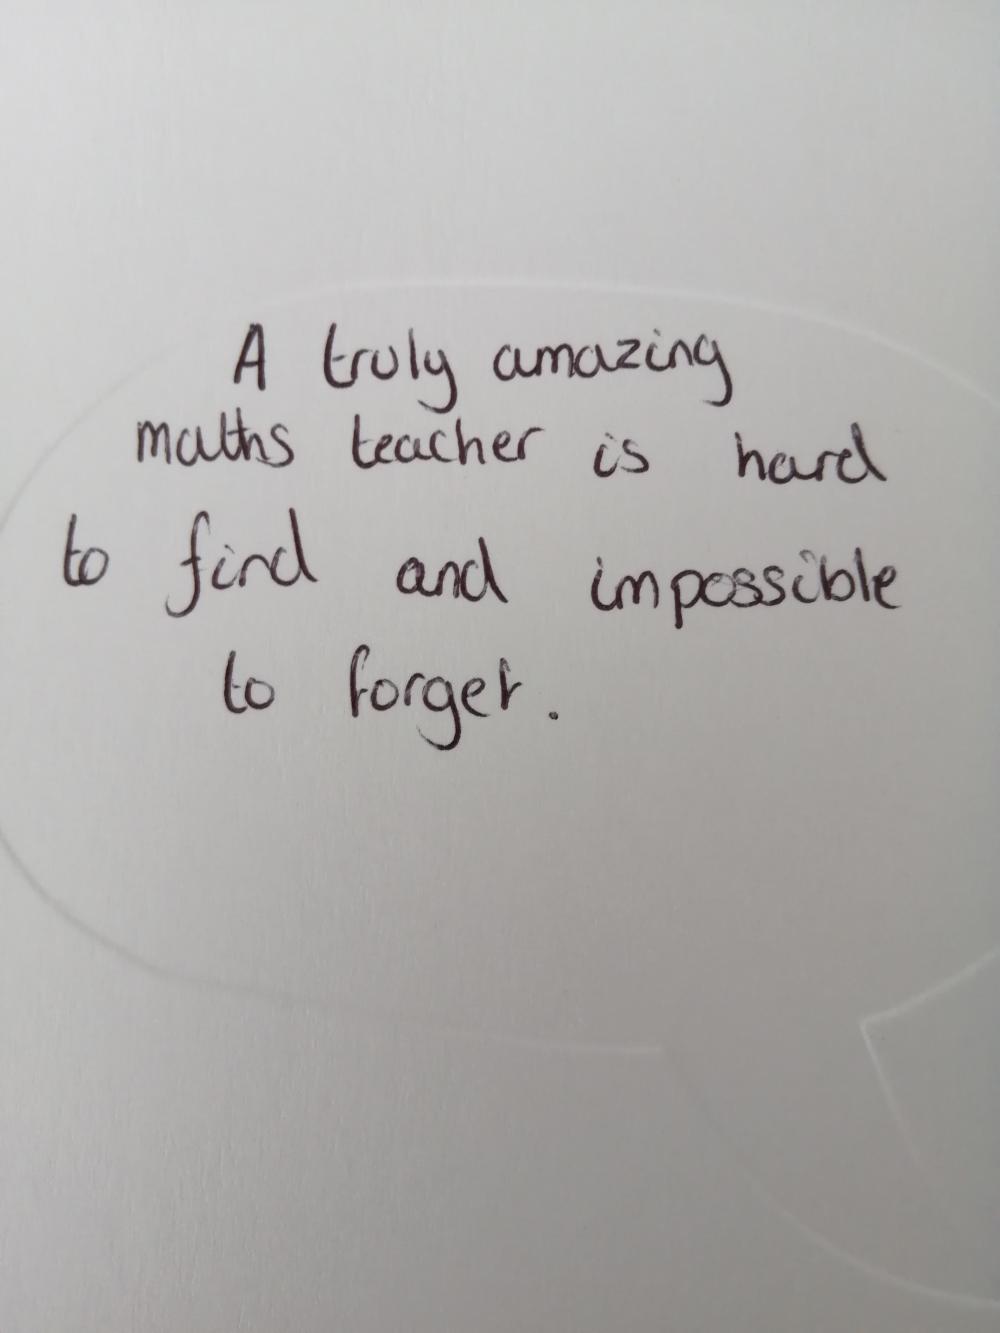 A truly amazing
maths teacher is hard
to find and impossible
to forget.